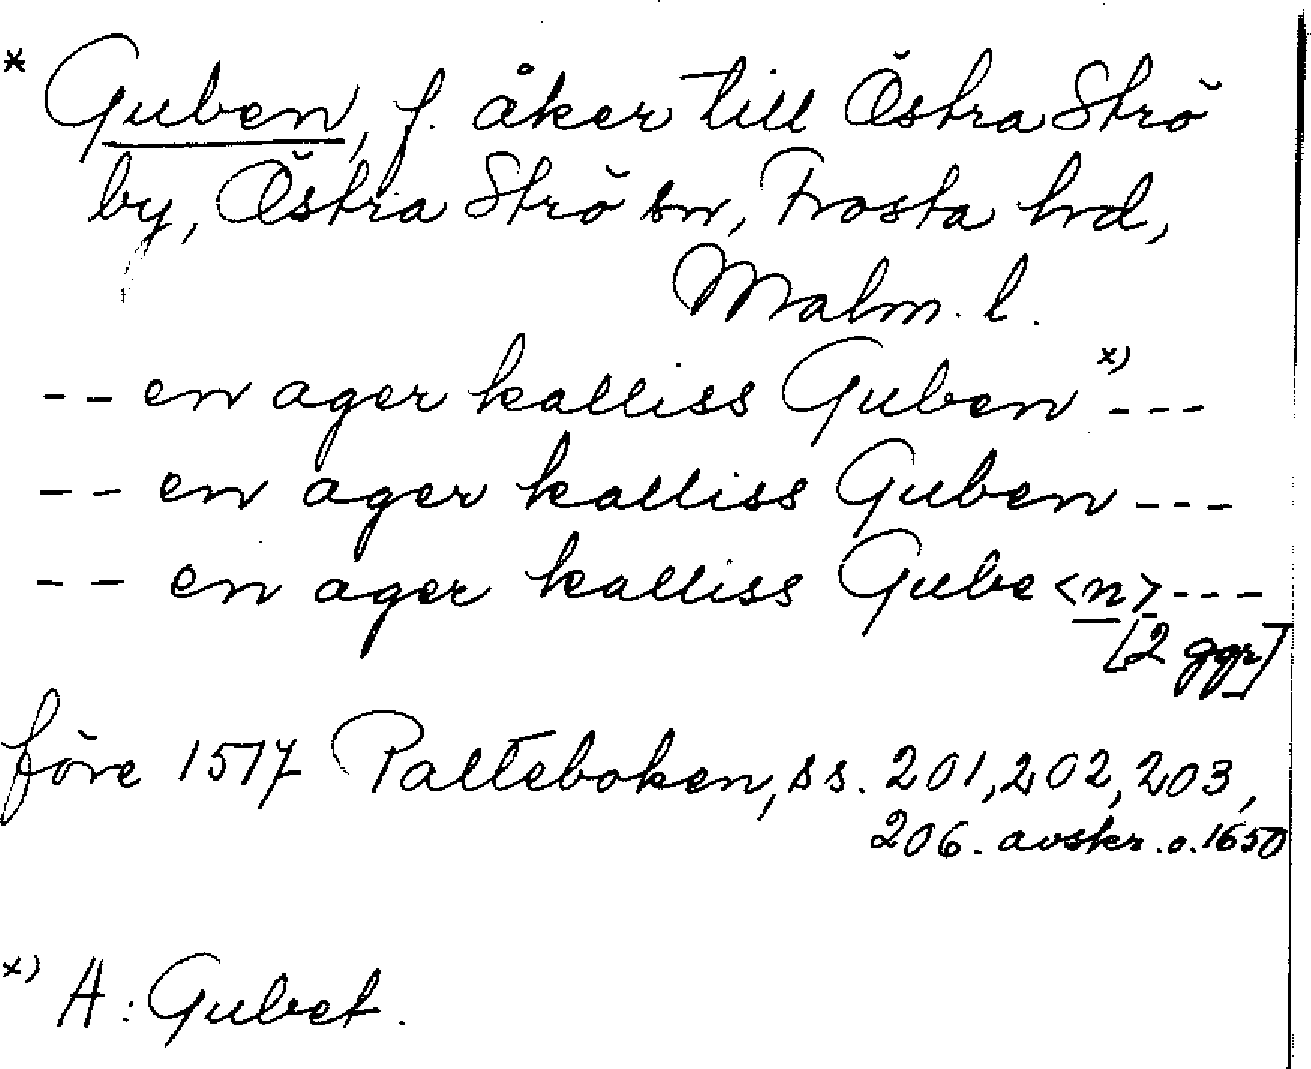 * Guben, f. åker till Östra Strö
by, Östra Strö sn, Frosta hd,
Malm. l.
-- en ager kalliss Guben x) ---
-- en ager kalliss Guben ---
-- en ager kalliss Gube<n> ---
[2 ggr]
före 1517 Palteboken, ss. 201, 202, 203,
206. avskr. o. 1650
x) A: Gubet.